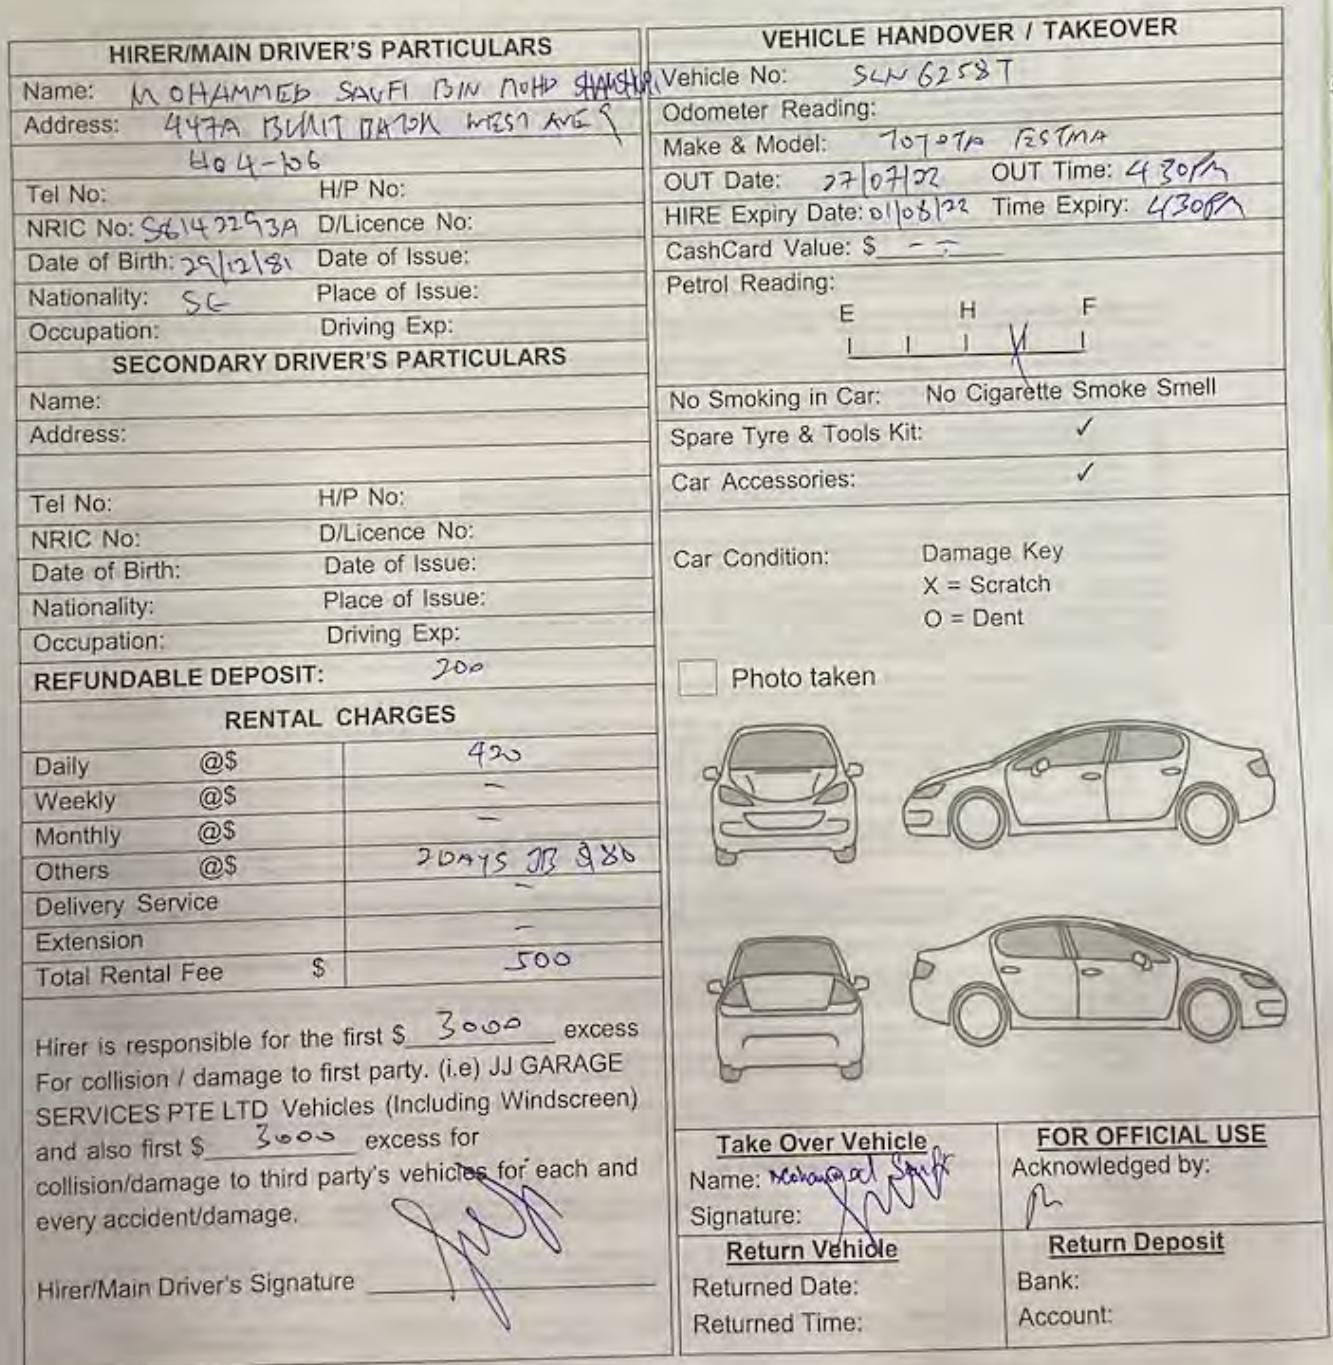 HIRER/MAIN DRIVER'S PARTICULARS
Name: MOHAMMED SAUFI BIN MOHD
Address: 447A BUKIT BATOK WEST AVE 9
#04-106
Tel No: H/P No:
NRIC No: S8142293A D/Licence No:
Date of Birth: 29/12/81 Date of Issue:
Nationality: SG Place of Issue:
Occupation: Driving Exp:
SECONDARY DRIVER'S PARTICULARS
Name:
Address:
Tel No: H/P No:
NRIC No: D/Licence No:
Date of Birth: Date of Issue:
Nationality: Place of Issue:
Occupation: Driving Exp:
REFUNDABLE DEPOSIT: 200
RENTAL CHARGES
Daily @$ 420
Weekly @$ -
Monthly @$ -
Others @$ 2 DAYS JB $80
Delivery Service -
Extension -
Total Rental Fee $ 500
Hirer is responsible for the first $ 3000 excess
For collision / damage to first party. (i.e) JJ GARAGE
SERVICES PTE LTD Vehicles (Including Windscreen)
and also first $ 3000 excess for
collision/damage to third party's vehicles for each and
every accident/damage.
Hirer/Main Driver's Signature
VEHICLE HANDOVER / TAKEOVER
Vehicle No: SLN 6258T
Odometer Reading:
Make & Model: TOYOTA ESTIMA
OUT Date: 27/07/22 OUT Time: 4 30PM
HIRE Expiry Date: 01/08/22 Time Expiry: 430PM
CashCard Value: $ - -
Petrol Reading:
E H F
No Smoking in Car: No Cigarette Smoke Smell
Spare Tyre & Tools Kit: ✓
Car Accessories: ✓
Car Condition: Damage Key
X = Scratch
O = Dent
Photo taken
Take Over Vehicle
Name: Mohammed Saufi
Signature:
FOR OFFICIAL USE
Acknowledged by:
Return Vehicle
Returned Date:
Returned Time:
Return Deposit
Bank:
Account: